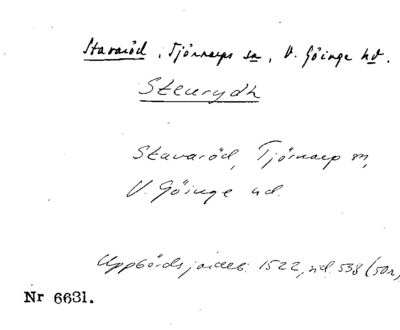 Stavaröd, Tjörnarps sn, V. Göinge hd.
Stenrydh
Stavaröd, Tjörnarp sn,
V. Göinge hd.
Uppbördsjordeb. 1522, nd. 538 (50n)
Nr 6631.